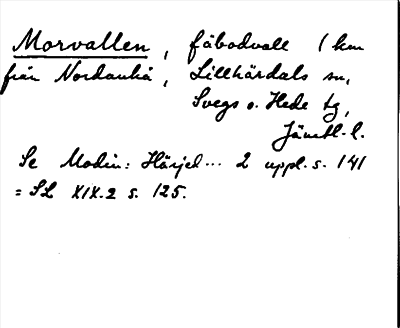 Morvallen, fäbodvall 1 km
från Nordanhå, Lillhärdals sn,
Svegs o. Hede tg,
Jämtl. l.
Se Modin: Härjed... 2 uppl. s. 141
= SL XIX.2 s. 125.